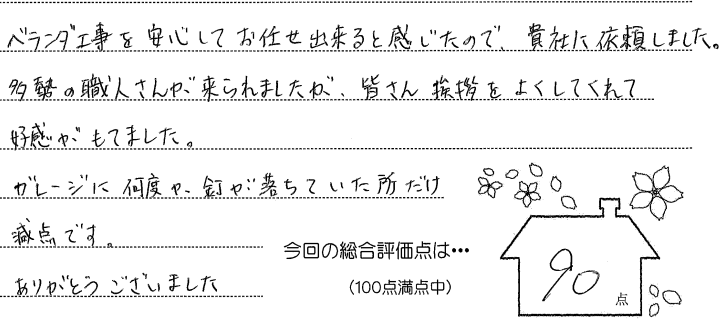 ベランダ工事を安心してお任せ出来ると感じたので、貴社に依頼しました。
多勢の職人さんが来られましたが、皆さん挨拶をよくしてくれて
好感がもてました。
ガレージに何度か、釘が落ちていた所だけ
減点です。
ありがとうございました
今回の総合評価点は…
(100点満点中)
90点